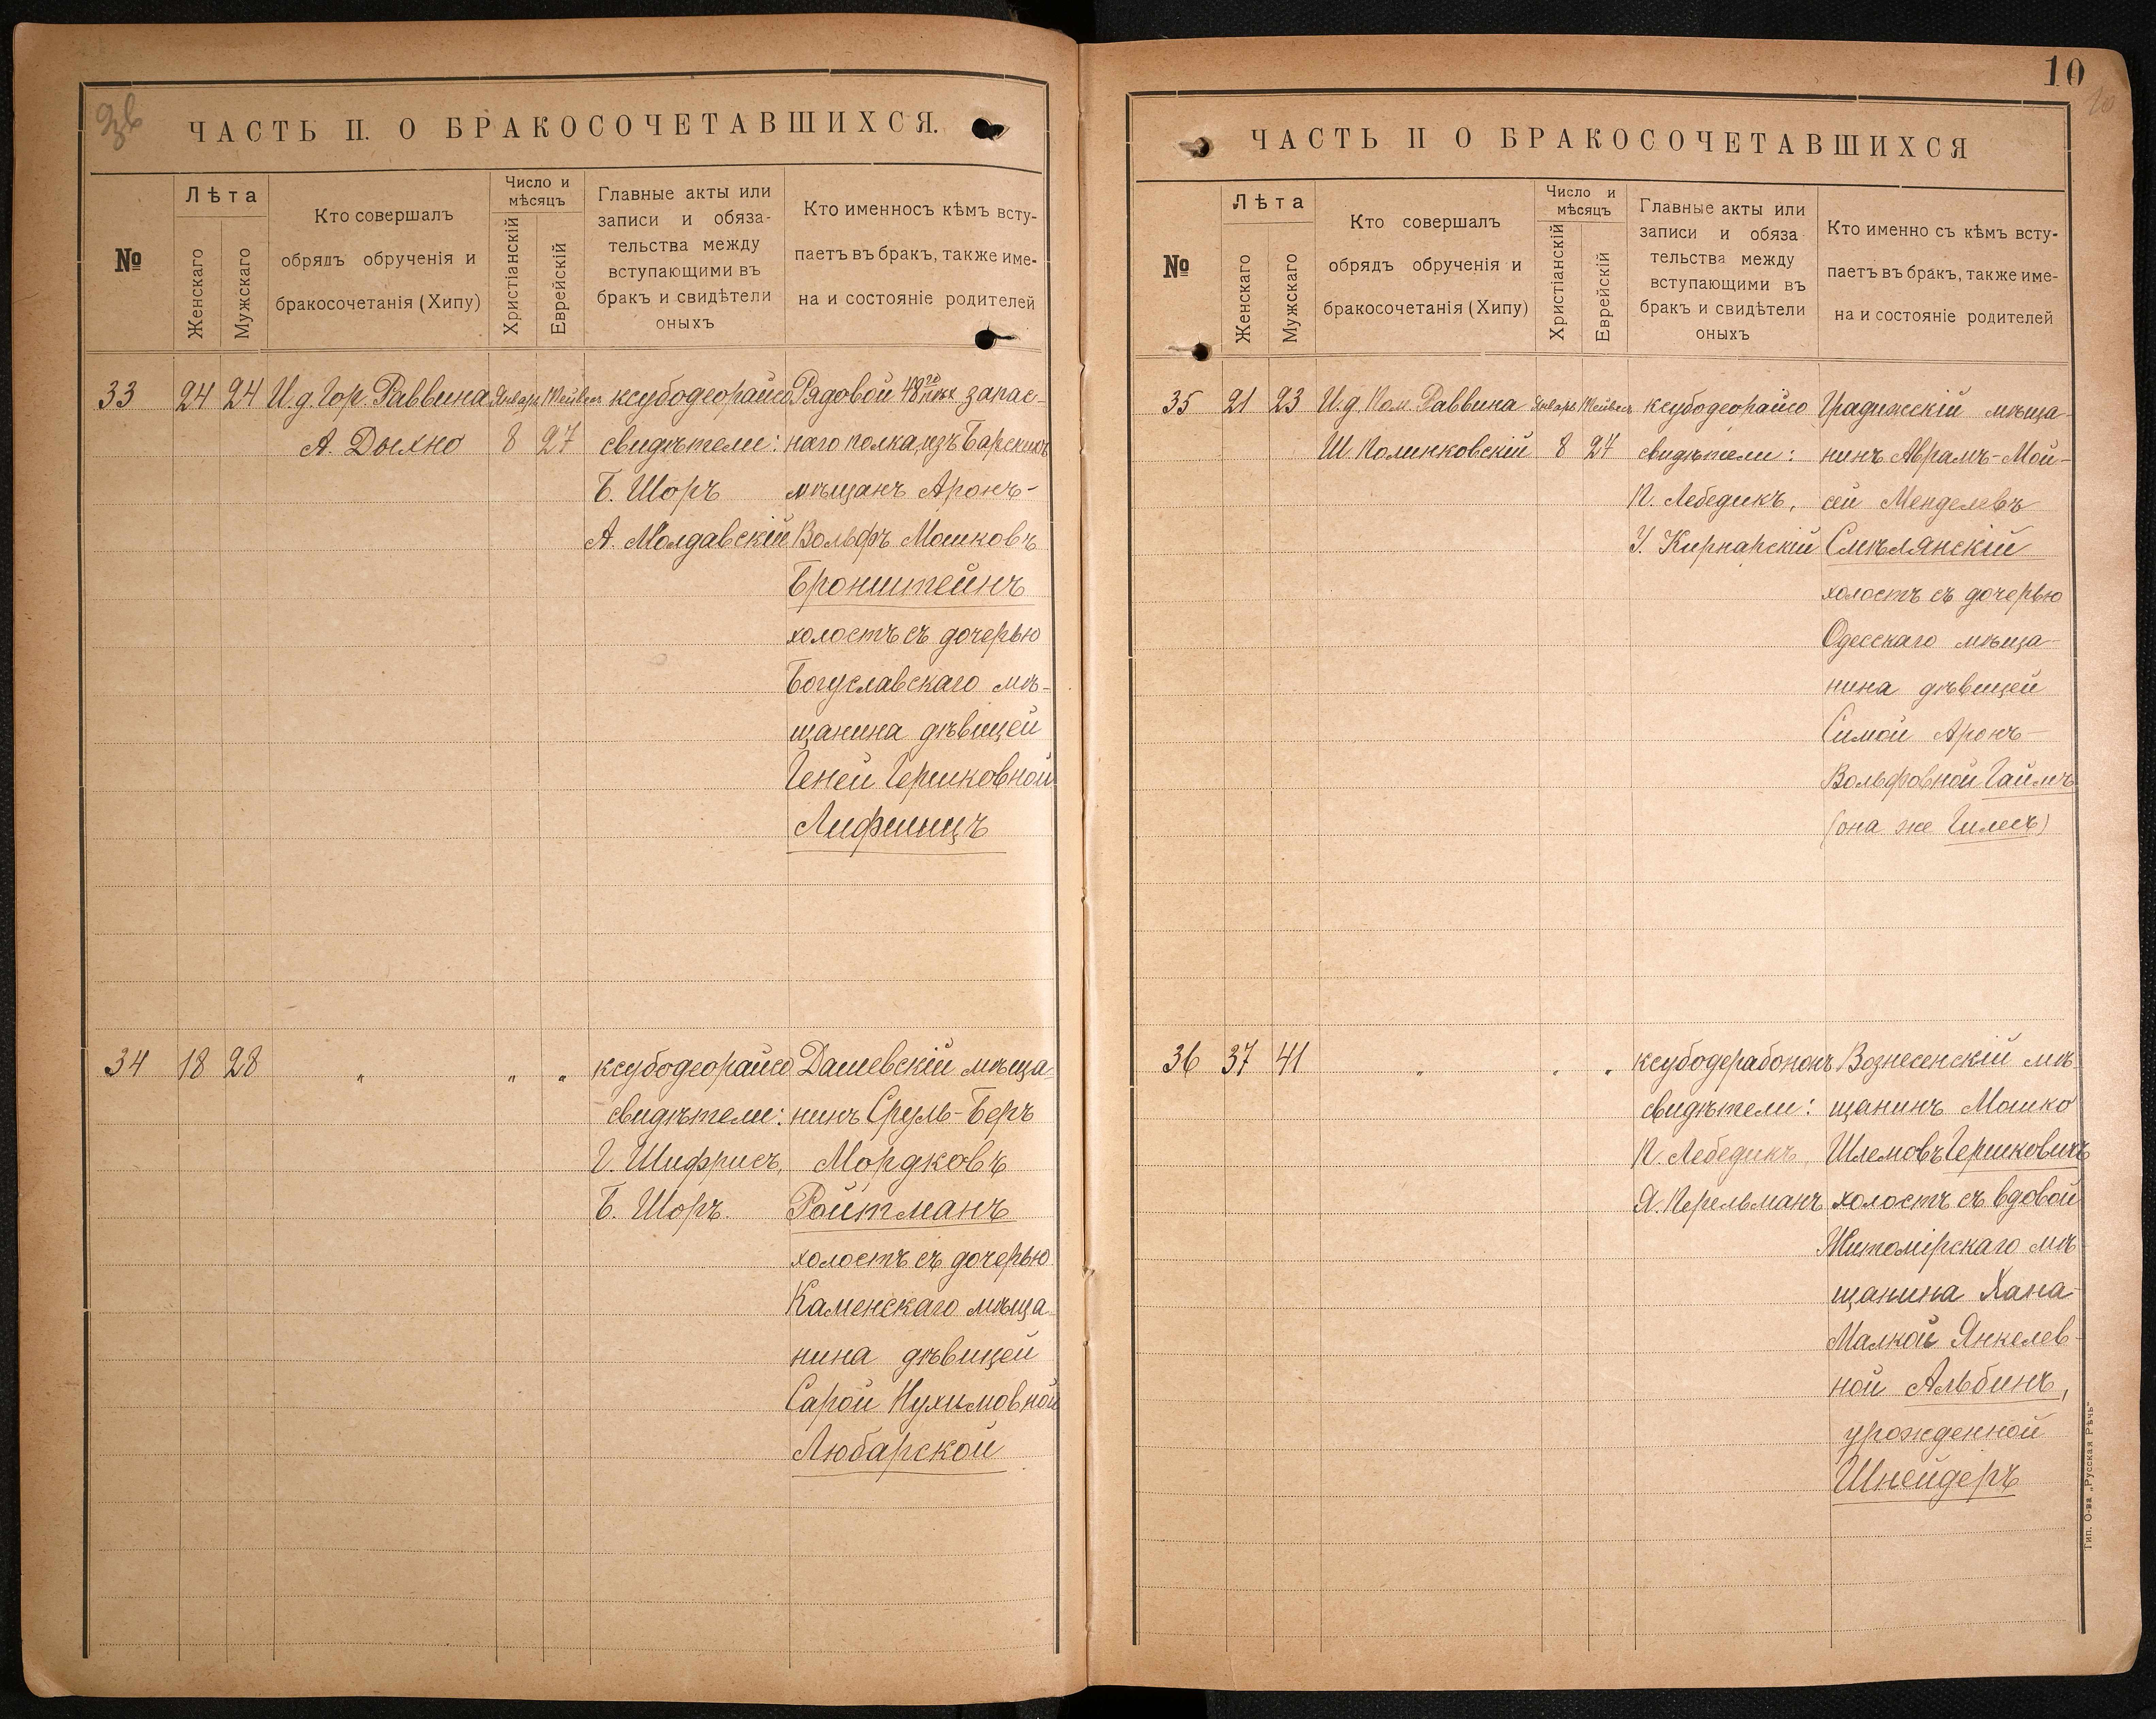 ЧАСТЬ II. О БРАКОСОЧЕТАВШИХСЯ.
№
Лѣта
Женскаго
Мужскаго
Кто совершалъ
обрядъ обрученія и
бракосочетанія (Хипу)
Число и
мѣсяцъ
Христіанскій
Еврейскій
Главные акты или
записи и обяза-
тельства между
вступающими въ
бракъ и свидѣтели
оныхъ
Кто именносъ кѣмъ всту-
паетъ въ бракъ, также име-
на и состояніе родителей
33
24
24
И.д. Гор. Раввина
А. Дыхно
Января
8
Тейвеса
27
ксубодеорайсо
свидѣтели:
Б. Шоръ
А. Молдавскій
Рядовой 48го пѣх. запас-
наго полка, изъ Барскихъ
мѣщанъ Аронъ-
Вольфъ Мошковъ
Бронштейнъ
холостъ съ дочерью
Богуславскаго мѣ-
щанина дѣвицей
Геней Гершковной
Лифшицъ
34
18
28
"
"
"
ксубодеорайсо
свидѣтели:
Г. Шифрисъ,
Б. Шоръ.
Дашевскій мѣща-
нинъ Сруль-Беръ
Мордковъ
Ройтманъ
холостъ съ дочерью
Каменскаго мѣща-
нина дѣвицей
Сарой Нухимовной
Любарской
10
10
ЧАСТЬ II О БРАКОСОЧЕТАВШИХСЯ
№
Лѣта
Женскаго
Мужскаго
Кто совершалъ
обрядъ обрученія и
бракосочетанія (Хипу)
Число и
мѣсяцъ
Христіанскій
Еврейскій
Главные акты или
записи и обяза
тельства между
вступающими въ
бракъ и свидѣтели
оныхъ
Кто именно съ кѣмъ всту-
паетъ въ бракъ, также име-
на и состояніе родителей
35
21
23
И.д. Пом. Раввина
Ш. Полинковскій
Января
8
Тейвеса
27
ксубодеорайсо
свидѣтели:
П. Лебедикъ,
У. Кирнарскій
Градижскій мѣща-
нинъ Абрамъ-Мой-
сей Менделевъ
Смѣлянскій
холостъ съ дочерью
Одесскаго мѣща-
нина дѣвицей
Симой Аронъ-
Вольфовной Гаймъ
(она же Гилесъ)
36
37
41
"
"
"
ксубодерабононъ
свидѣтели:
П. Лебедикъ,
Я. Перельманъ
Вознесенскій мѣ-
щанинъ Мошко
Шлемовъ Гершковичъ
холостъ съ вдовой
Житомірскаго мѣ-
щанина Хана-
Малкой Янкелев-
ной Альбинъ,
урожденной
Шнейдеръ
Тип. О-ва „Русская Рѣчь“